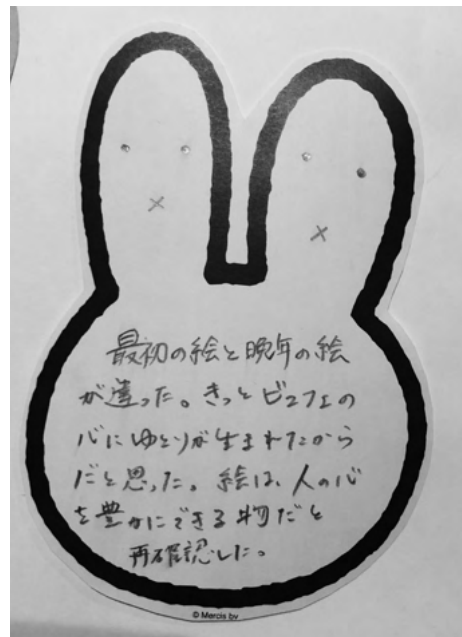 最初の絵と晩年の絵
が違った。きっとビュフェの
心にゆとりが生まれたから
だと思った。絵は、人の心
を豊かにできる物だと
再確認した。
© Mercis bv